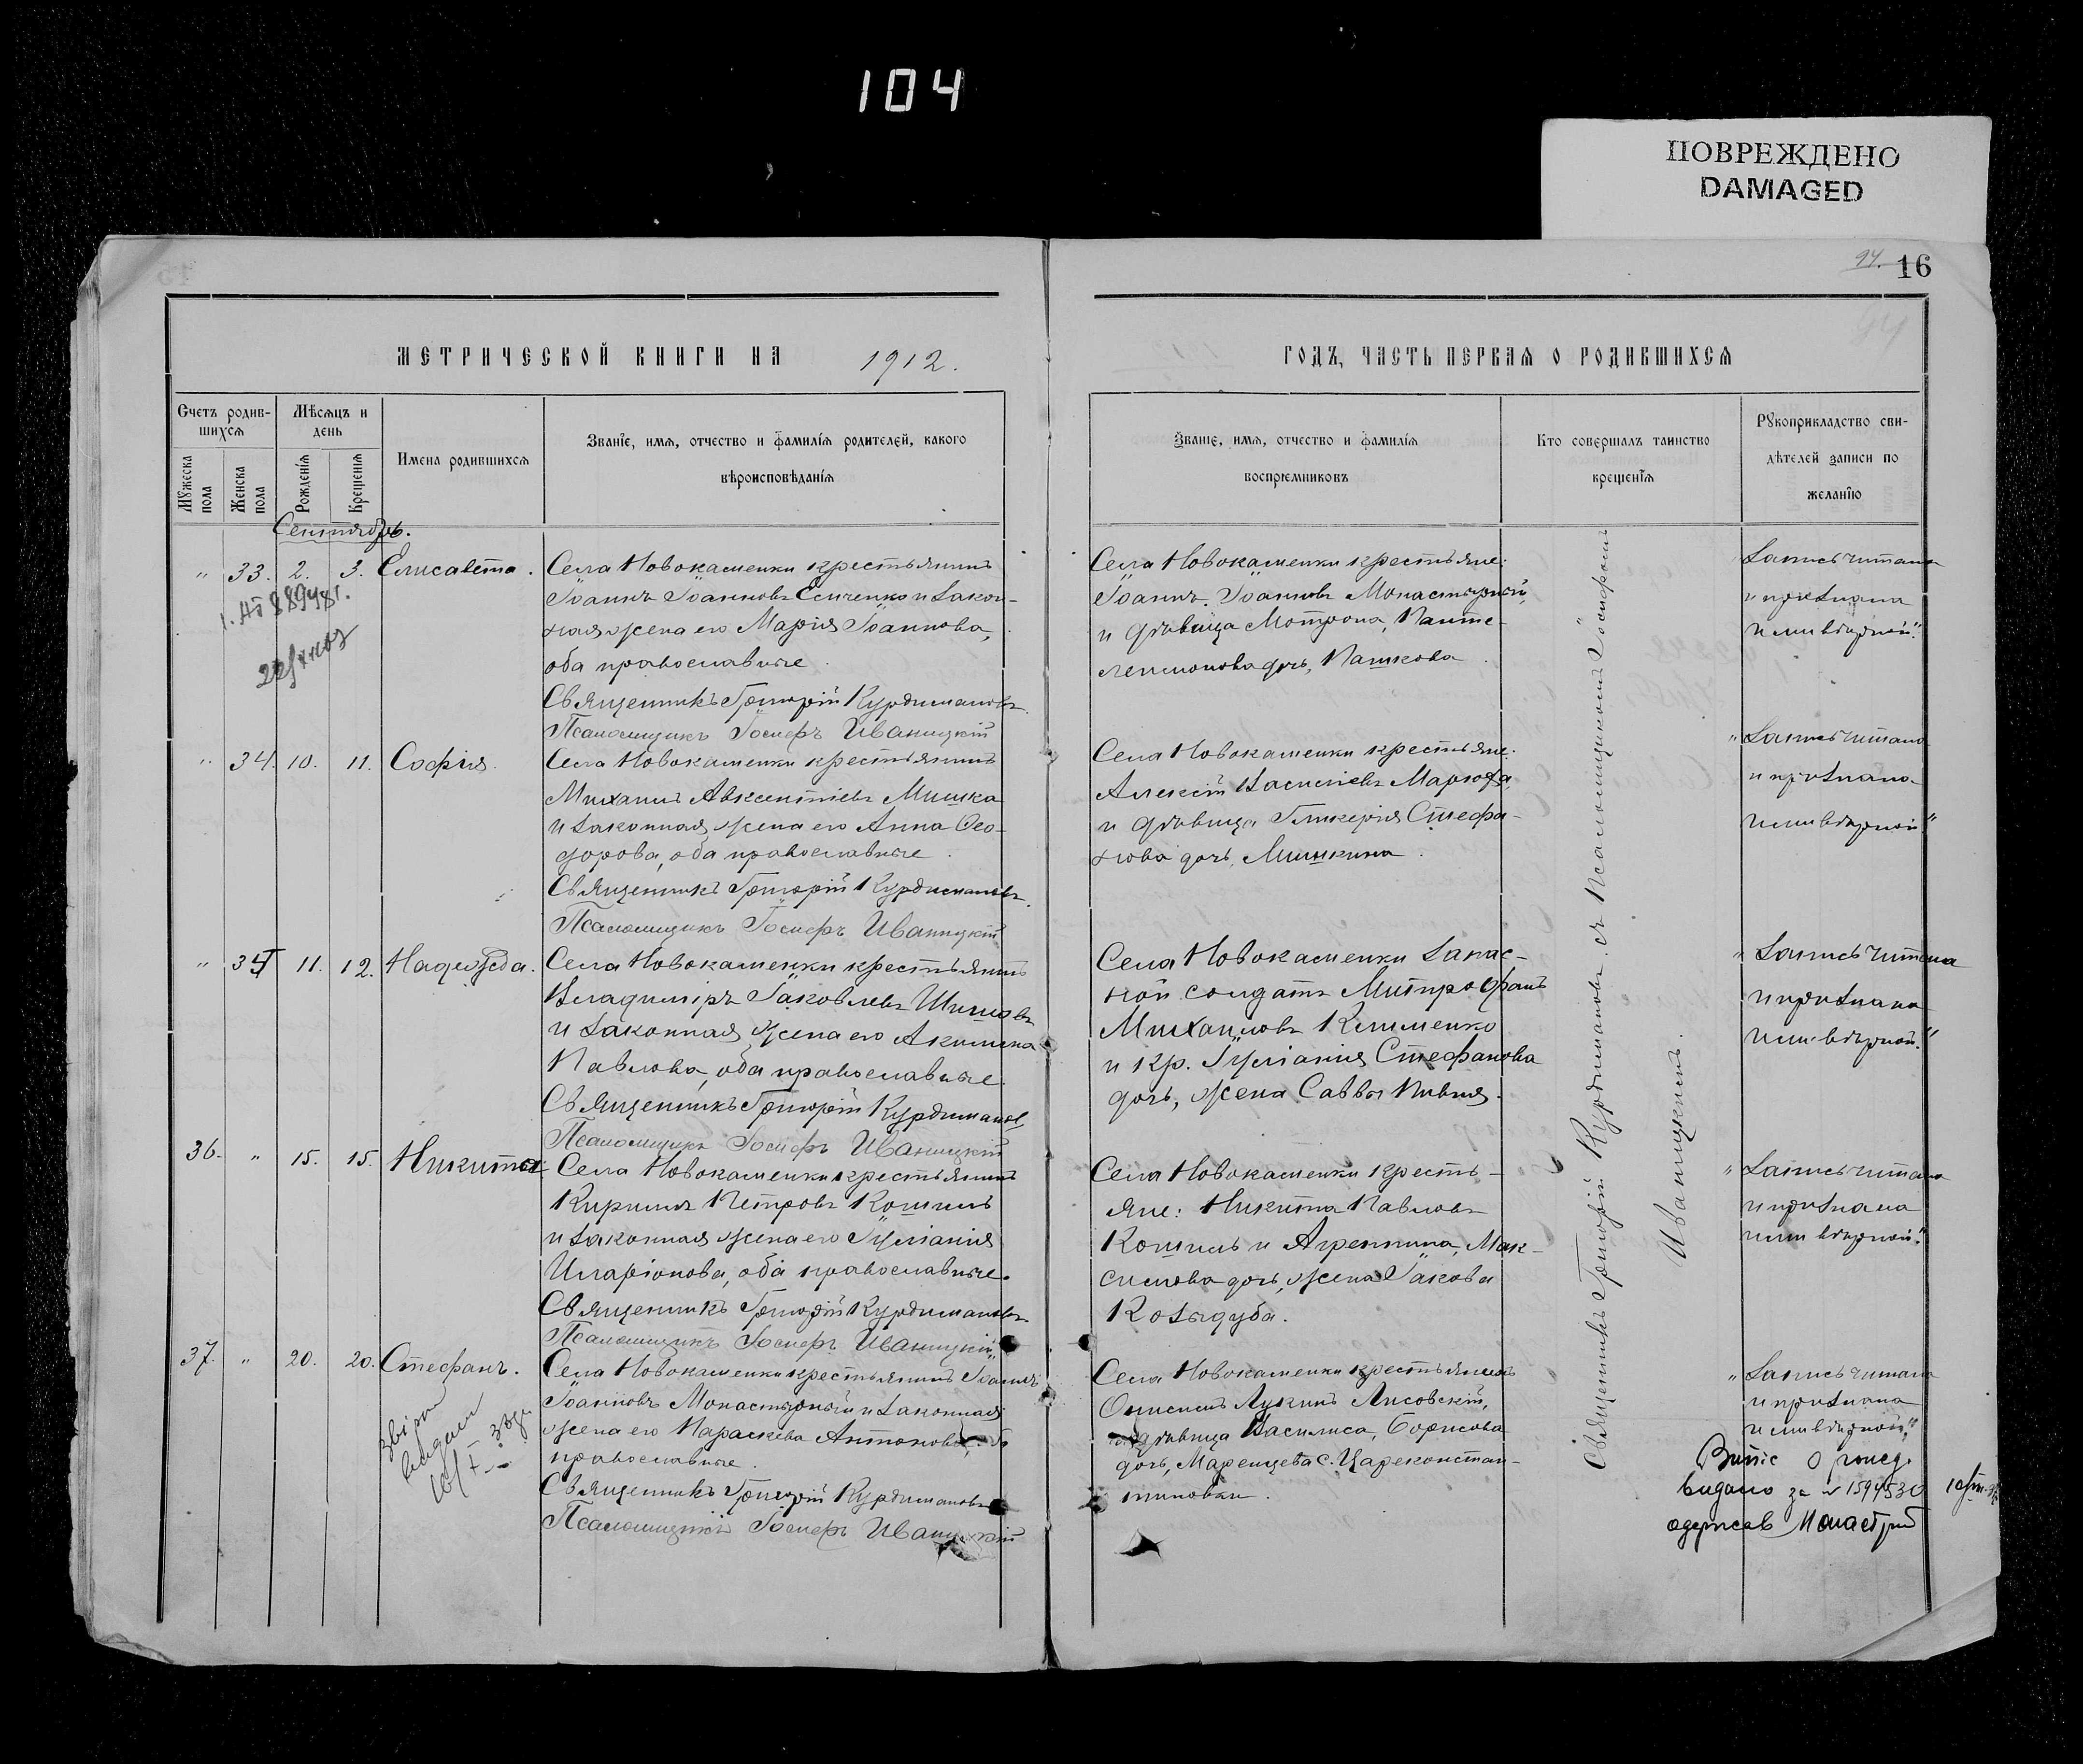 104
ПОВРЕЖДЕНО
DAMAGED
94. 16
МЕТРИЧЕСКОЙ КНИГИ НА 1912.
ГОДЪ, ЧАСТЬ ПЕРВАЯ О РОДИВШИХСЯ
Счетъ родив-
шихся
Мѣсяцъ и
день
Мужеска пола
Женска пола
Рожденія
Крещенія
Имена родившихся
Званіе, имя, отчество и фамилія родителей, какого
вѣроисповѣданія
Званіе, имя, отчество и фамилія
воспріемниковъ
Кто совершалъ таинство
крещенія
Рукоприкладство сви-
дѣтелей записи по
желанію
Сентябрь.
" 33. 2. 3. Елисавета.
Села Новокаменки крестьянинъ
Іоаннъ Іоанновъ Есипенко и закон-
ная жена его Марія Іоаннова,
оба православные.
Священникъ Григорій Курдимановъ.
Псаломщикъ Іосифъ Иваницкій
Села Новокаменки крестьяне:
Іоаннъ Іоанновъ Монастырный,
и дѣвица Мотрона, Панте-
леимонова дочь, Пашкова.
Запись читана
и признана
ими вѣрной."
" 34. 10. 11. Софія.
Села Новокаменки крестьянинъ
Михаилъ Авксентіевъ Мишка
и законная жена его Анна Ѳео-
дорова, оба православные.
Священникъ Григорій Курдимановъ.
Псаломщикъ Іосифъ Иваницкій
Села Новокаменки крестьяне:
Алексій Василіевъ
и дѣвица Гликерія Стефа-
нова дочь, Мишкина.
"Запись читана
и признана
ими вѣрной"
" 35 11. 12. Надежда.
Села Новокаменки крестьянинъ
Владиміръ Іаковлевъ Шишовъ
и законная жена его Акилина
Павлова, оба православные.
Священникъ Григорій Курдимановъ
Псаломщикъ Іосифъ Иваницкій
Села Новокаменки запас-
ной солдатъ Митрофанъ
Михаиловъ Клименко
и кр. Іуліанія Стефанова
дочь, жена Саввы Пивня.
"Запись читана
и признана
ими вѣрной."
36. " 15. 15. Никита
Села Новокаменки крестьянинъ
Кириллъ Петровъ Кошиль
и законная жена его Іуліанія
Иларіонова, оба православные.
Священникъ Григорій Курдимановъ.
Псаломщикъ Іосифъ Иваницкій
Села Новокаменки кресть-
яне: Никита Павловъ
Кошиль и Агрепина, Мак-
симова дочь, жена Іакова
Козыдуба.
"Запись читана
и признана
ими вѣрной."
37. " 20. 20. Стефанъ.
Села Новокаменки крестьянинъ Іоаннъ
Іоанновъ Монастырный и законная
жена его Параскева Антонова,
православные.
Священникъ Григорій Курдимановъ
Псаломщикъ Іосифъ Иваницкій
Села Новокаменки крестьянинъ
Онисимъ Лукинъ Лисовскій,
дѣвица Василиса, Борисова
дочь, Маренцева с. Цареконстан-
тиновки.
"Запись читана
и признана
ими вѣрной."
Витяг о рожд.
видано за № 1594530
одержав Монастирный
Священникъ Григорій Курдимановъ съ Псаломщикомъ Іосифомъ
Иваницкимъ.